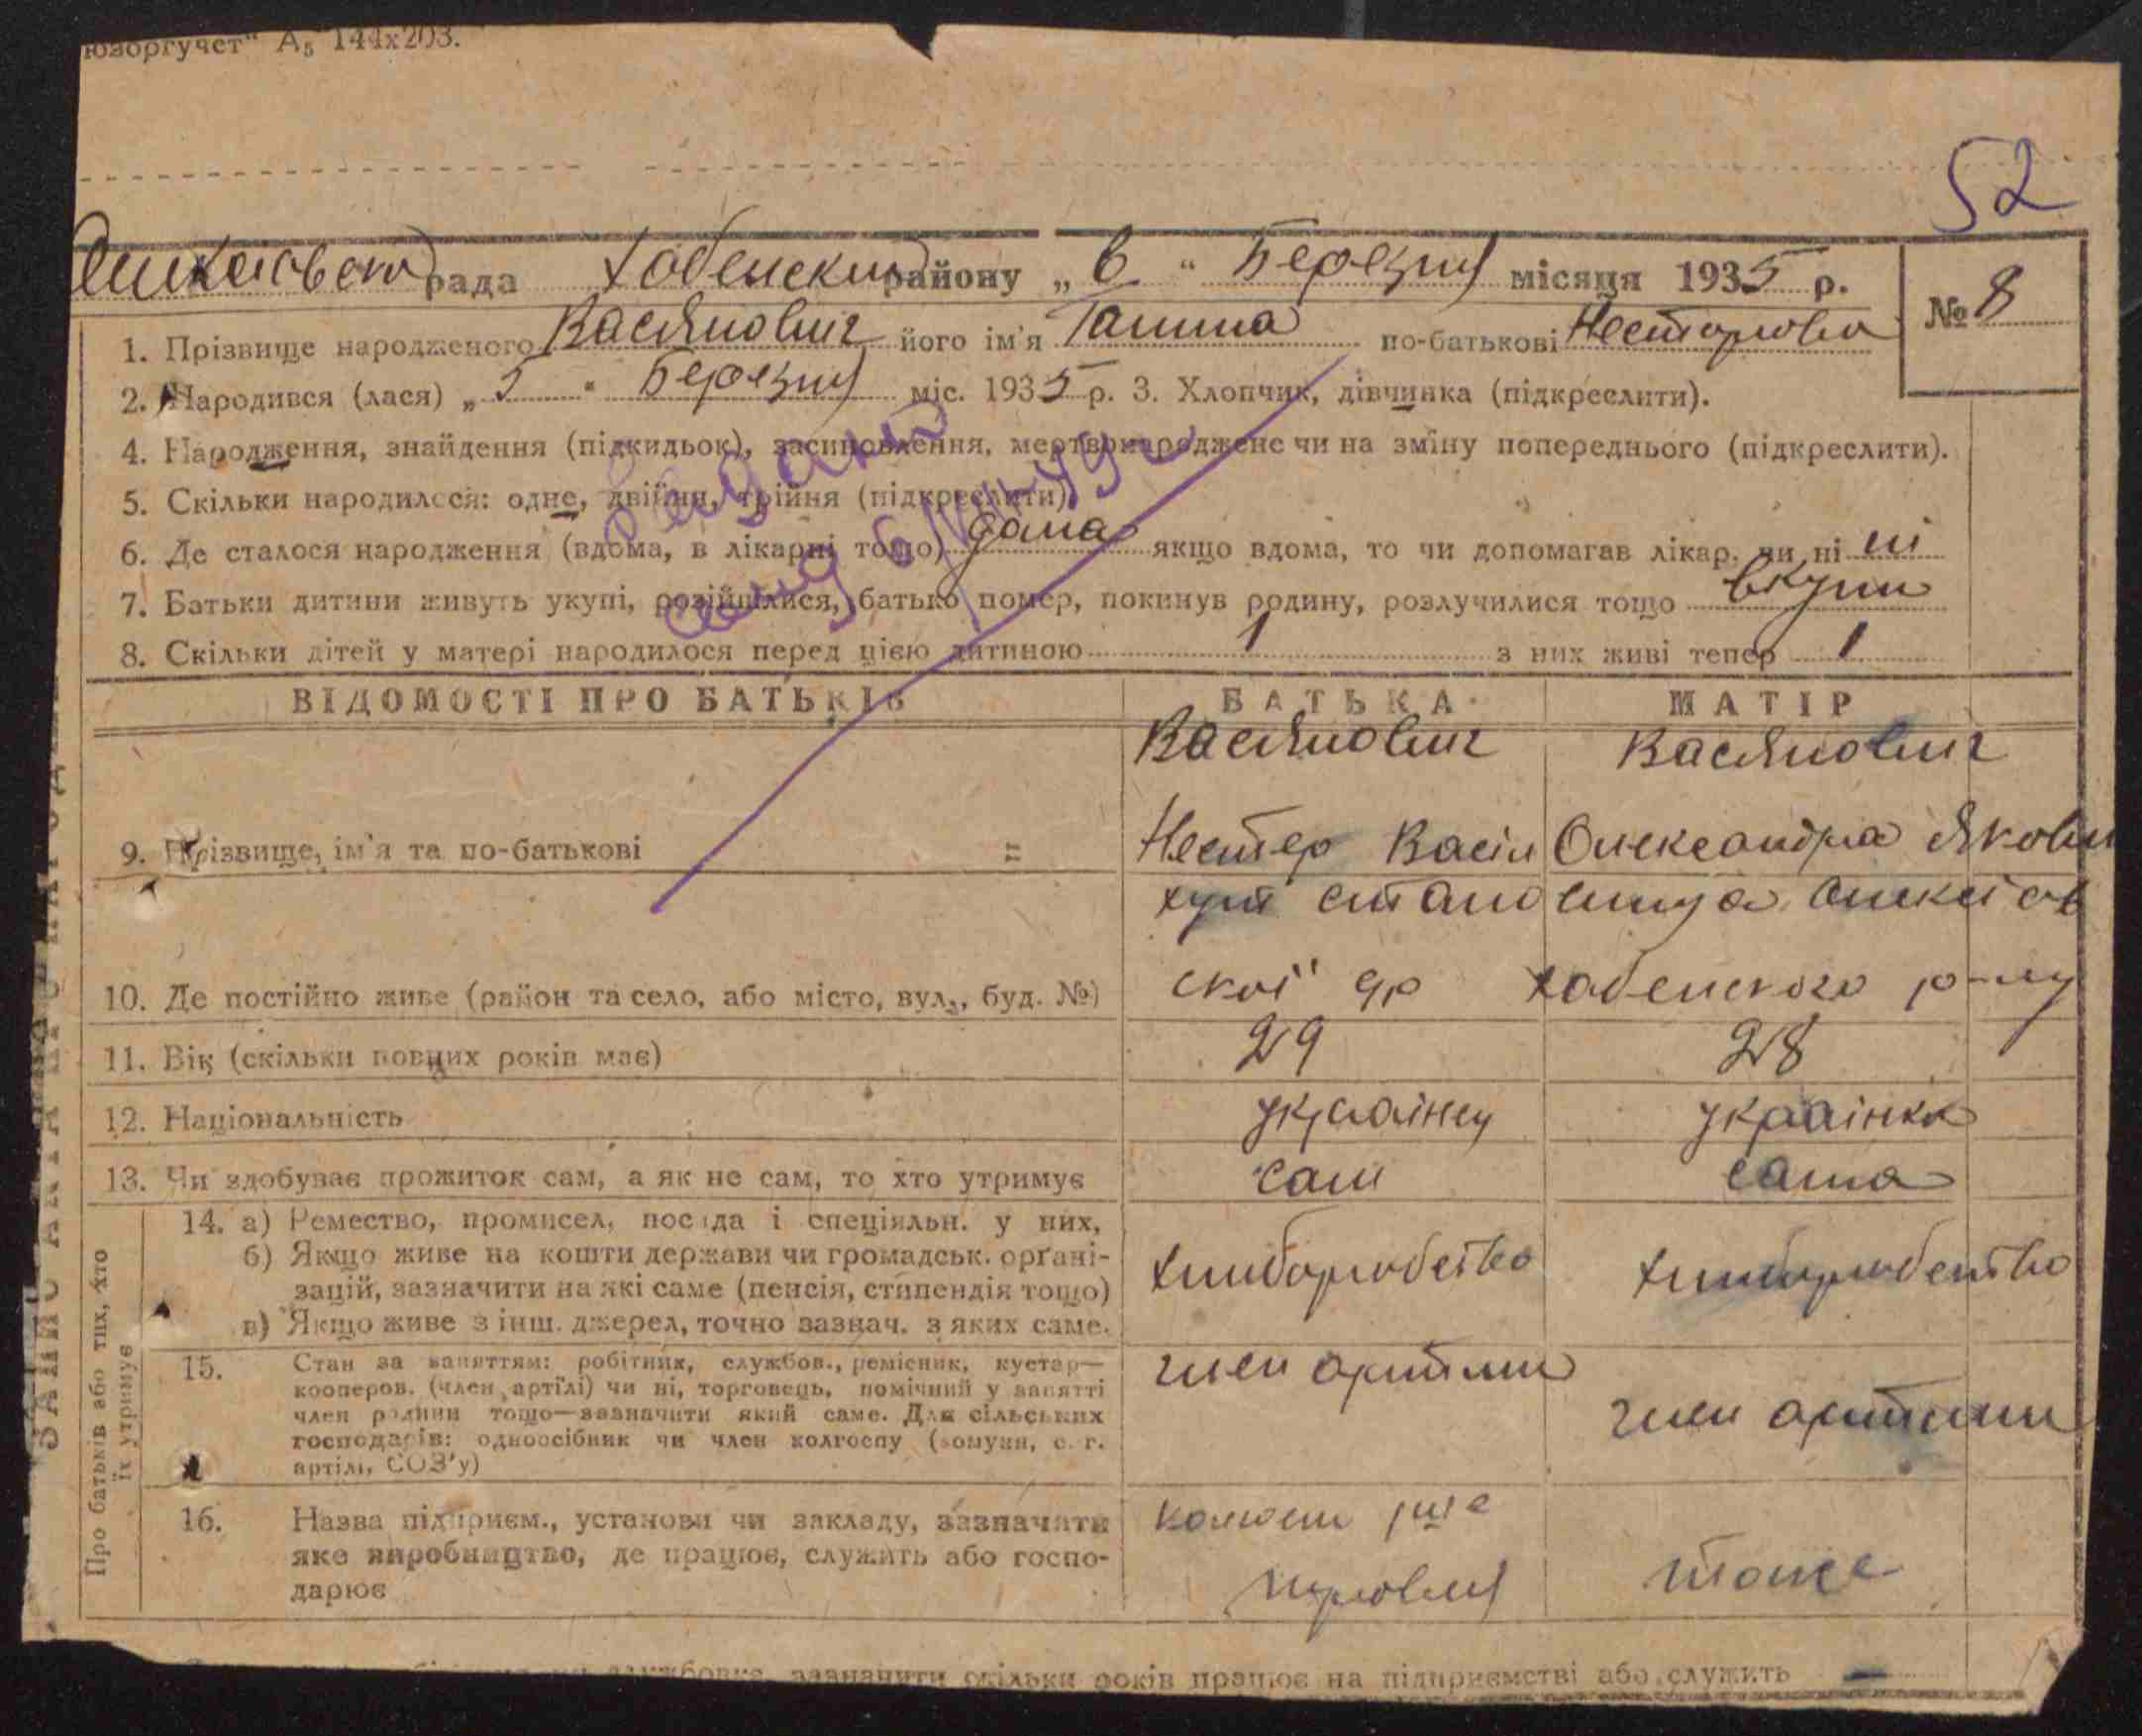 юзоргучет" А5 144х203.
52
рада Хабенский району „6“ Березня місяця 1935 р.
№ 8
1. Прізвище народженого Васянович його ім'я Ганна по-батькові Несторовна
2. Народився (лася) „5“ Березня міс. 1935 р. 3. Хлопчик, дівчинка (підкреслити).
4. Народження, знайдення (підкидьок), засиновлення, мертвонароджене чи на зміну попереднього (підкреслити).
5. Скільки народилося: одне, двійня, трійня (підкреслити)
6. Де сталося народження (вдома, в лікарні тощо) дома якщо вдома, то чи допомагав лікар, чи ні ні
7. Батьки дитини живуть укупі, розійшлися, батько помер, покинув родину, розлучилися тощо вкупи
8. Скільки дітей у матері народилося перед цією дитиною 1 з них живі тепер 1
ВІДОМОСТІ ПРО БАТЬКІВ БАТЬКА МАТІР
Васянович Васянович
9. Прізвище, ім'я та по-батькові " Нестер Васіл Олександра Яковл
хут
10. Де постійно живе (район та село, або місто, вул., буд. №) ської с/р Хабенского р-ну
11. Вік (скільки повних років має) 29 28
12. Національність українец украінка
13. Чи здобуває прожиток сам, а як не сам, то хто утримує сам сама
Про батьків або тих, хто їх утримує
14. а) Ремество, промисел, посада і спеціяльн. у них,
б) Якщо живе на кошти держави чи громадськ. орґані-
зацій, зазначити на які саме (пенсія, стипендія тощо)
в) Якщо живе з інш. джерел, точно зазнач. з яких саме.
хлиборобство хлиборобство
15. Стан за заняттям: робітник, службов., ремісник, кустар—
кооперов. (член артілі) чи ні, торговець, помічний у занятті
член родини тощо—зазначити який саме. Для сільських
господарів: одноосібник чи член колгоспу (комуни, с. г.
артілі, СОЗ'у)
член артили член артили
16. Назва підприєм., установи чи закладу, зазначити
яке виробництво, де працює, служить або госпо-
дарює
тоже
зазначити скільки років працює на підприємстві або служить —